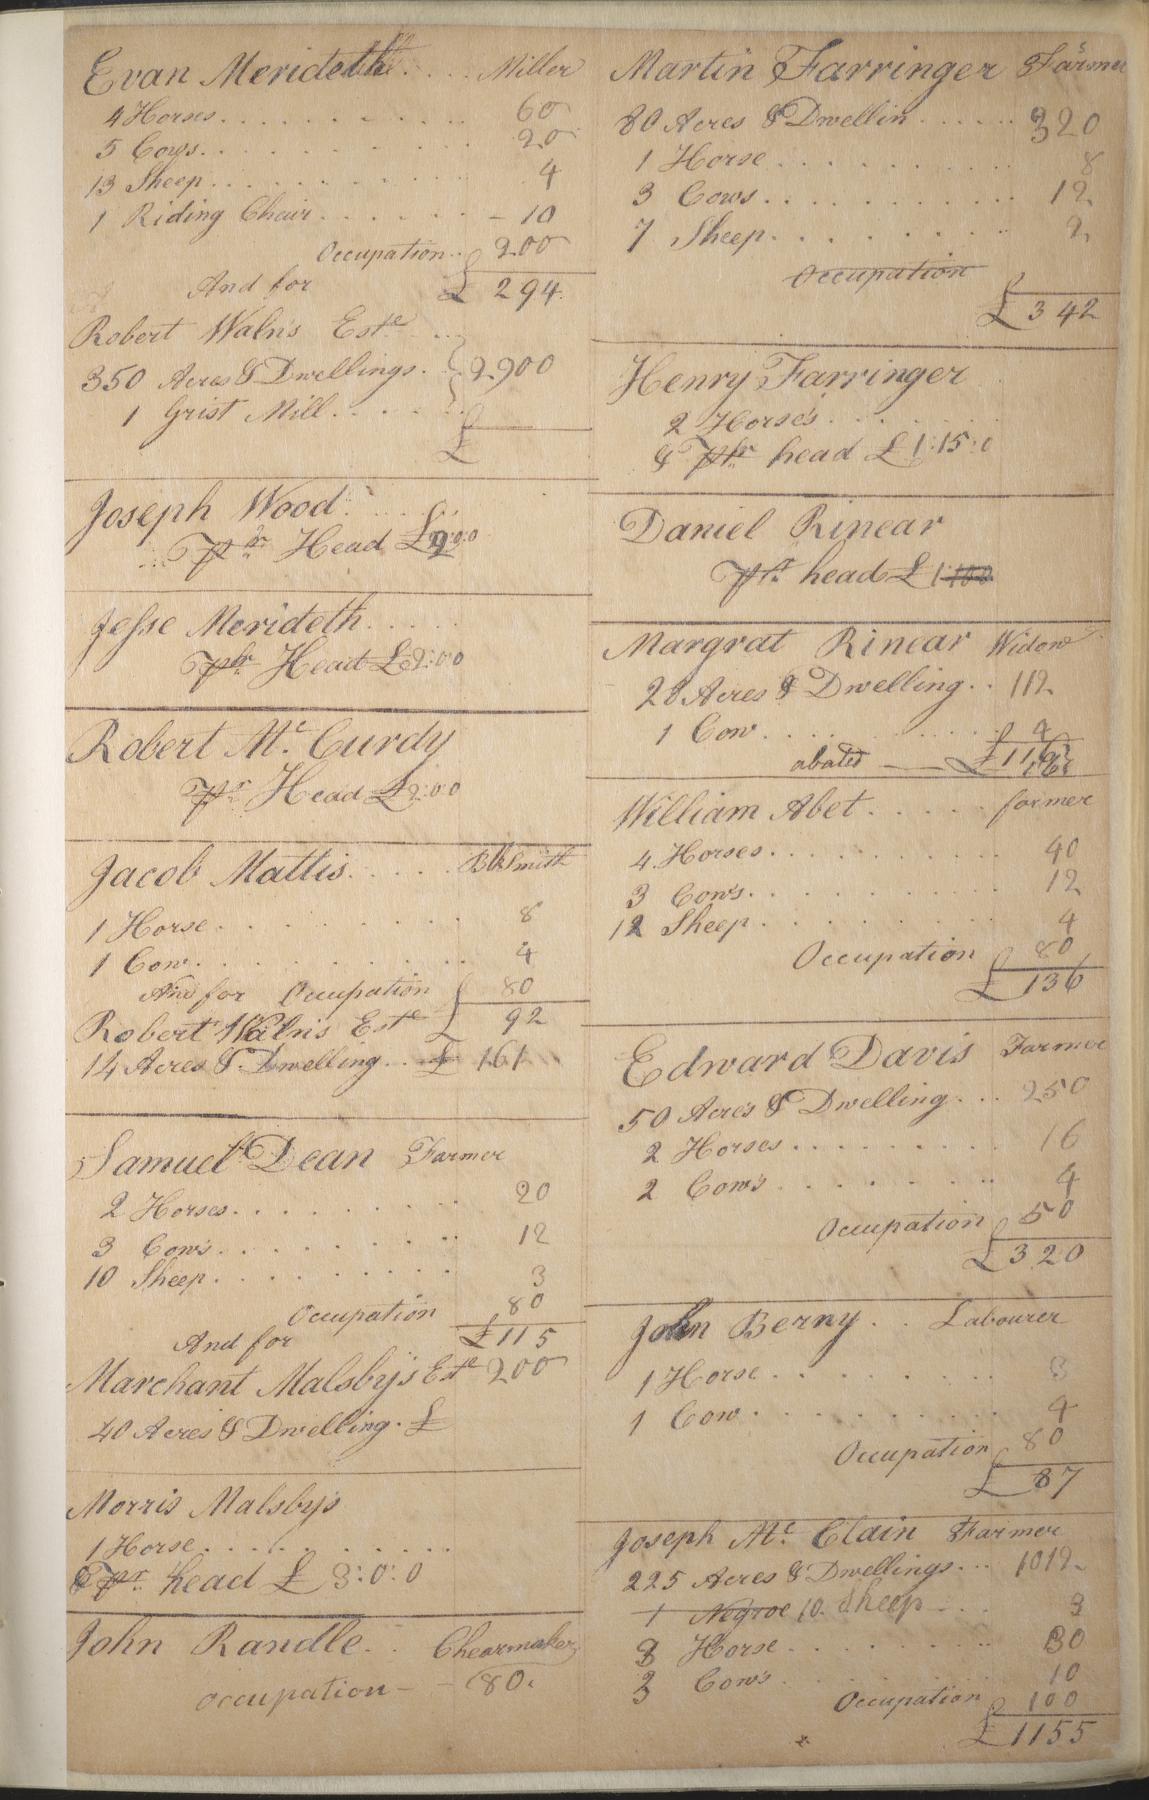 Evan Merideth.... Miller
4 Horses............ 60
5 Cows............ 20
13 Sheep............ 4
1 Riding Chair...... - 10
Occupation.. 200
And for £ 294
Robert Waln's Este ...
350 Acres & Dwellings. } 2900
1 Grist Mill......
£
Joseph Wood......
Pr Head £2:0:0
Jesse Merideth.....
Pr Head £2:0:0
Robert Mc Curdy
Pr Head £2:0:0
Jacob Mattis..... BlkSmith
1 Horse......... 8
1 Cow......... 4
And for Occupation 80
Robert Waln's Este £ 92
14 Acres & Dwelling... £ 161
Samuel Dean Farmer
2 Horses......... 20
3 Cows......... 12
10 Sheep......... 3
Occupation 80
And for £115
Marchant Malsby's Este 200
40 Acres & Dwelling. £
Morris Malsby's
1 Horse..........
& Pr head £ 3:0:0
John Randle... Chearmaker
occupation - - 80.
Martin Farringer Farmer
80 Acres & Dwellin...... 320
1 Horse.......... 8
3 Cows.......... 12
7 Sheep.......... 2
Occupation
£342
Henry Farringer
2 Horses......
& Pr head £1:15:0
Daniel Rinear
Pr head £1
Margrat Rinear Widow
28 Acres & Dwelling.. 112
1 Cow.......... 4
abated —— £116
William Abet..... farmer
4 Horses.......... 40
3 Cows.......... 12
12 Sheep.......... 4
Occupation 80
£136
Edward Davis Farmer
50 Acres & Dwelling... 250
2 Horses......... 16
2 Cows......... 4
Occupation 50
£320
John Berny.. Labourer
1 Horse......... 3
1 Cow......... 4
Occupation 80
£87
Joseph Mc Clain Farmer
225 Acres & Dwellings... 1012
1 Negroe 10 Sheep... 3
3 Horse......... 30
3 Cows......... 10
Occupation 100
£1155